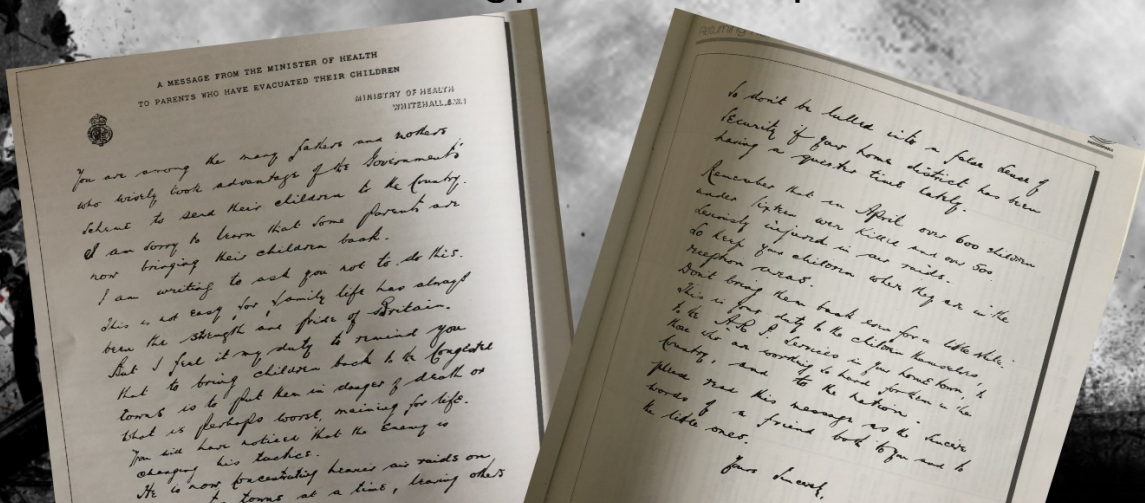 A MESSAGE FROM THE MINISTER OF HEALTH
TO PARENTS WHO HAVE EVACUATED THEIR CHILDREN
MINISTRY OF HEALTH
WHITEHALL, S.W.1
You are among the many fathers and mothers
who wisely took advantage of the Government's
scheme to send their children to the Country.
I am sorry to learn that some parents are
now bringing their children back.
I am writing to ask you not to do this.
This is not easy, for, family life has always
been the strength and pride of Britain.
But I feel it my duty to remind you
that to bring children back to the Congested
towns is to put them in danger of death or
what is perhaps worst, maiming for life.
You will have noticed that the Enemy is
changing his tactics.
He is now concentrating heavier air raids on
towns at a time, leaving others
So don't be lulled into a false sense of
Security if your home district has been
having a quieter time lately.
Remember that in April over 600 children
under sixteen were killed and over 500
seriously injured in air raids.
So keep your children where they are in the
reception areas.
Don't bring them back even for a little while.
This is your duty to the children themselves,
to the A.R.P. Services in your home town, to
those who are working so hard for them in the
Country, and to the nation.
please read this message as the sincere
words of a friend both to you and to
the little ones.
Yours Sincerely,